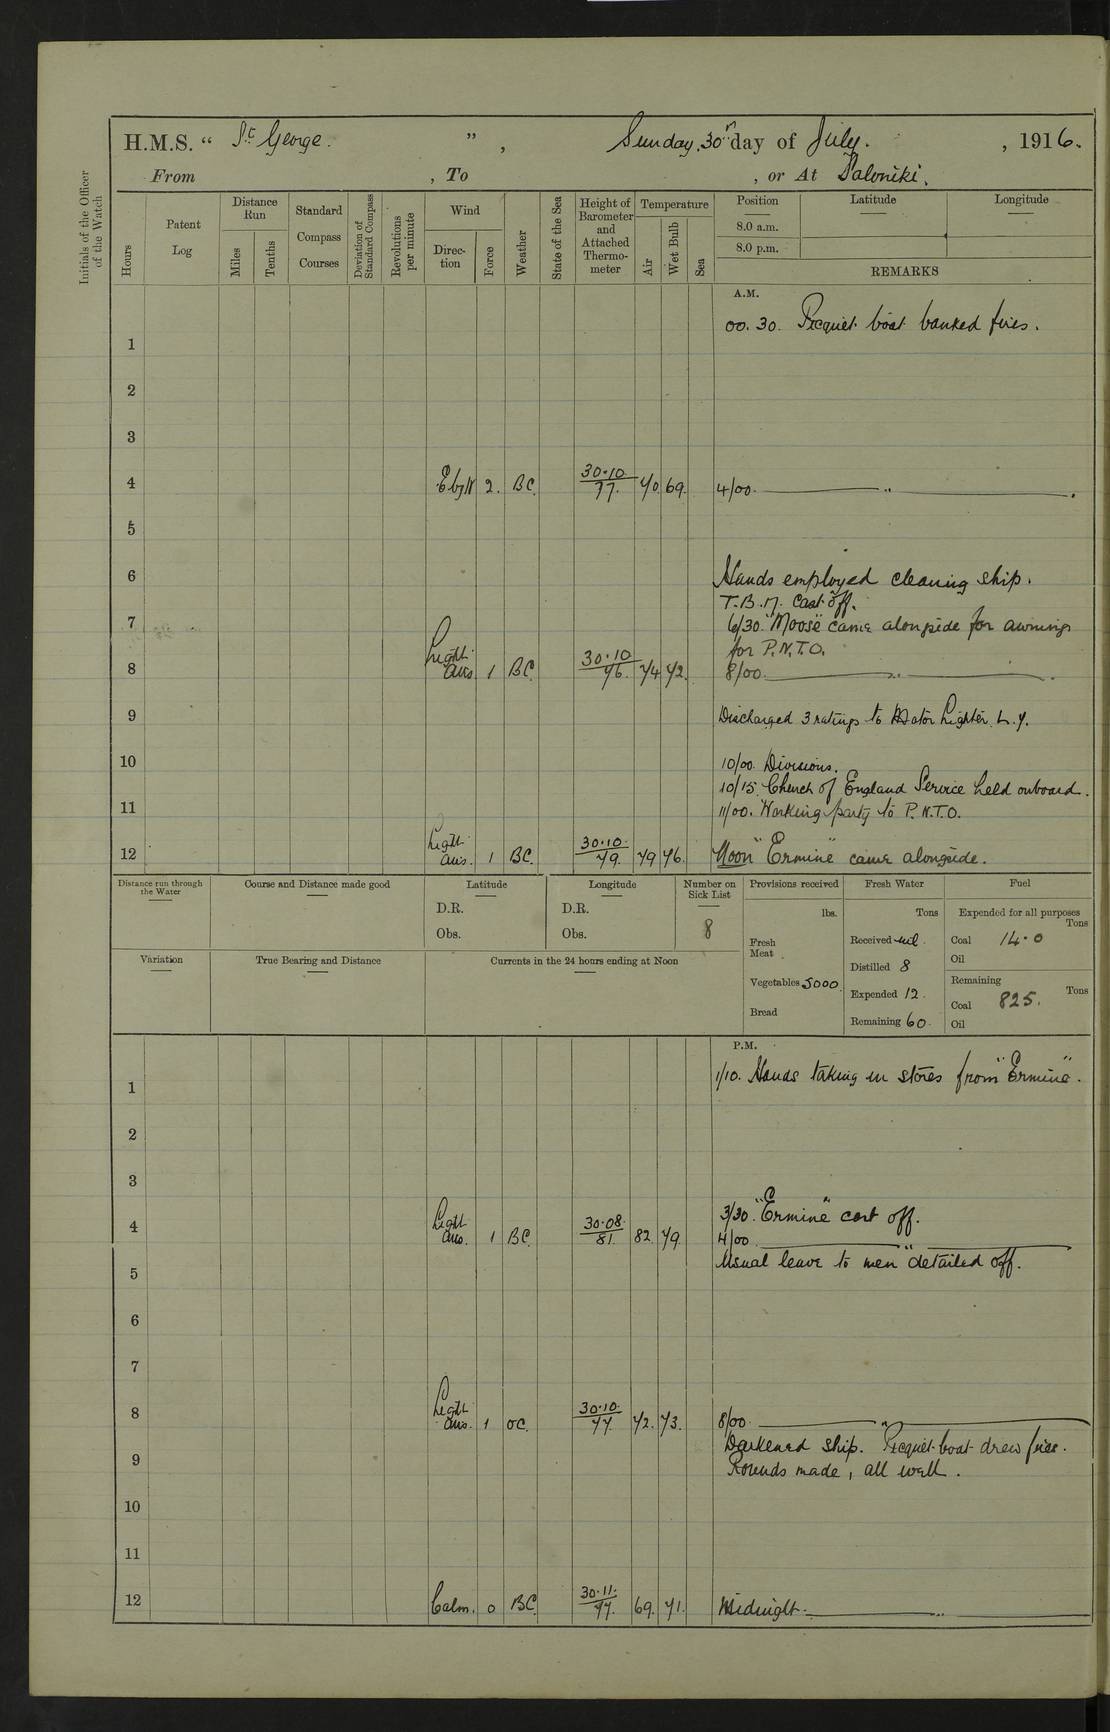 H.M.S. “ St. George. ”, Sunday, 30th day of July. , 1916.
From , To , or At Saloniki.
Initials of the Officer of the Watch
Hours
Patent Log
Distance Run
Miles
Tenths
Standard Compass Courses
Deviation of Standard Compass
Revolutions per minute
Wind
Direction
Force
Weather
State of the Sea
Height of Barometer and Attached Thermometer
Temperature
Air
Wet Bulb
Sea
Position Latitude Longitude
8.0 a.m.
8.0 p.m.
REMARKS
A.M.
00.30. Picquet boat banked fires.
1
2
3
4 EbyN 2. BC. 30.10 77. 70 69. 4/00. "
5
6 Hands employed cleaning ship.
T.B.17. cast off.
7 6/30. "Moose" came alongside for awnings
for P.N.T.O.
8 Light airs. 1 BC. 30.10 76. 74 72. 8/00. "
9 Discharged 3 ratings to Motor Lighter L.7.
10 10/00. Divisions.
10/15. Church of England Service held onboard.
11 11/00. Working party to P.N.T.O.
12 Light airs. 1 BC. 30.10. 79. 79 76. Noon "Ermine" came alongside.
Distance run through the Water
Course and Distance made good
Latitude
D.R.
Obs.
Longitude
D.R.
Obs.
Number on Sick List
8
Provisions received
lbs.
Fresh Meat
Vegetables 5000.
Bread
Fresh Water
Tons
Received nil.
Distilled 8
Expended 12.
Remaining 60.
Fuel
Expended for all purposes
Tons
Coal 14.0
Oil
Remaining
Tons
Coal 825.
Oil
Variation
True Bearing and Distance
Currents in the 24 hours ending at Noon
P.M.
1 1/10. Hands taking in stores from "Ermine".
2
3
3/30. "Ermine" cast off.
4 Light airs. 1 BC. 30.08. 81. 82. 79. 4/00 "
5 Usual leave to men detailed off.
6
7
8 Light airs. 1 OC. 30.10. 77. 72. 73. 8/00. "
Darkened ship. Picquet boat drew fires.
9 Rounds made, all well.
10
11
12 Calm. 0 BC. 30.11. 77. 69. 71. Midnight. "